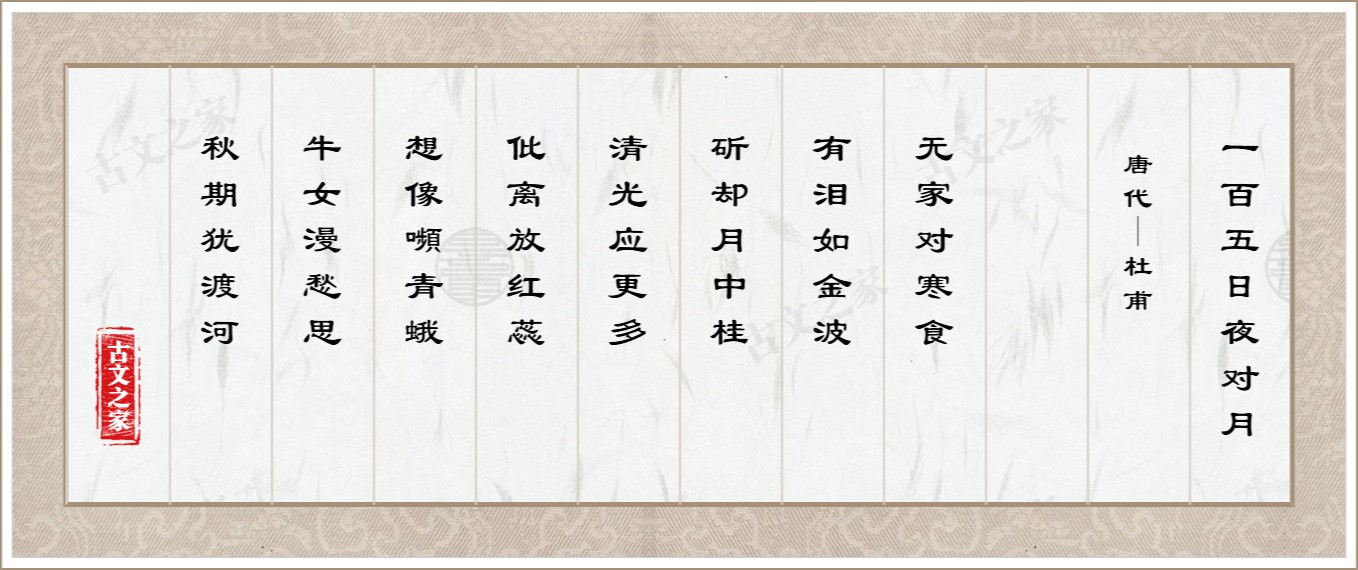 一百五日夜对月
唐代—杜甫
无家对寒食
有泪如金波
斫却月中桂
清光应更多
仳离放红蕊
想像嚬青蛾
牛女漫愁思
秋期犹渡河
古文之家
古文之家
古文之家
古文之家